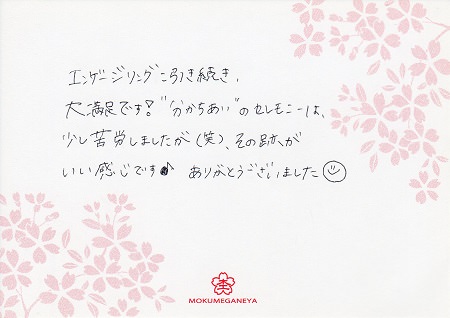 エンゲージリングに引き続き、
大満足です！"分かちあい"のセレモニーは、
少し苦労しましたが（笑）、その跡が
いい感じです♪ ありがとうございました☺
杢
MOKUMEGANEYA